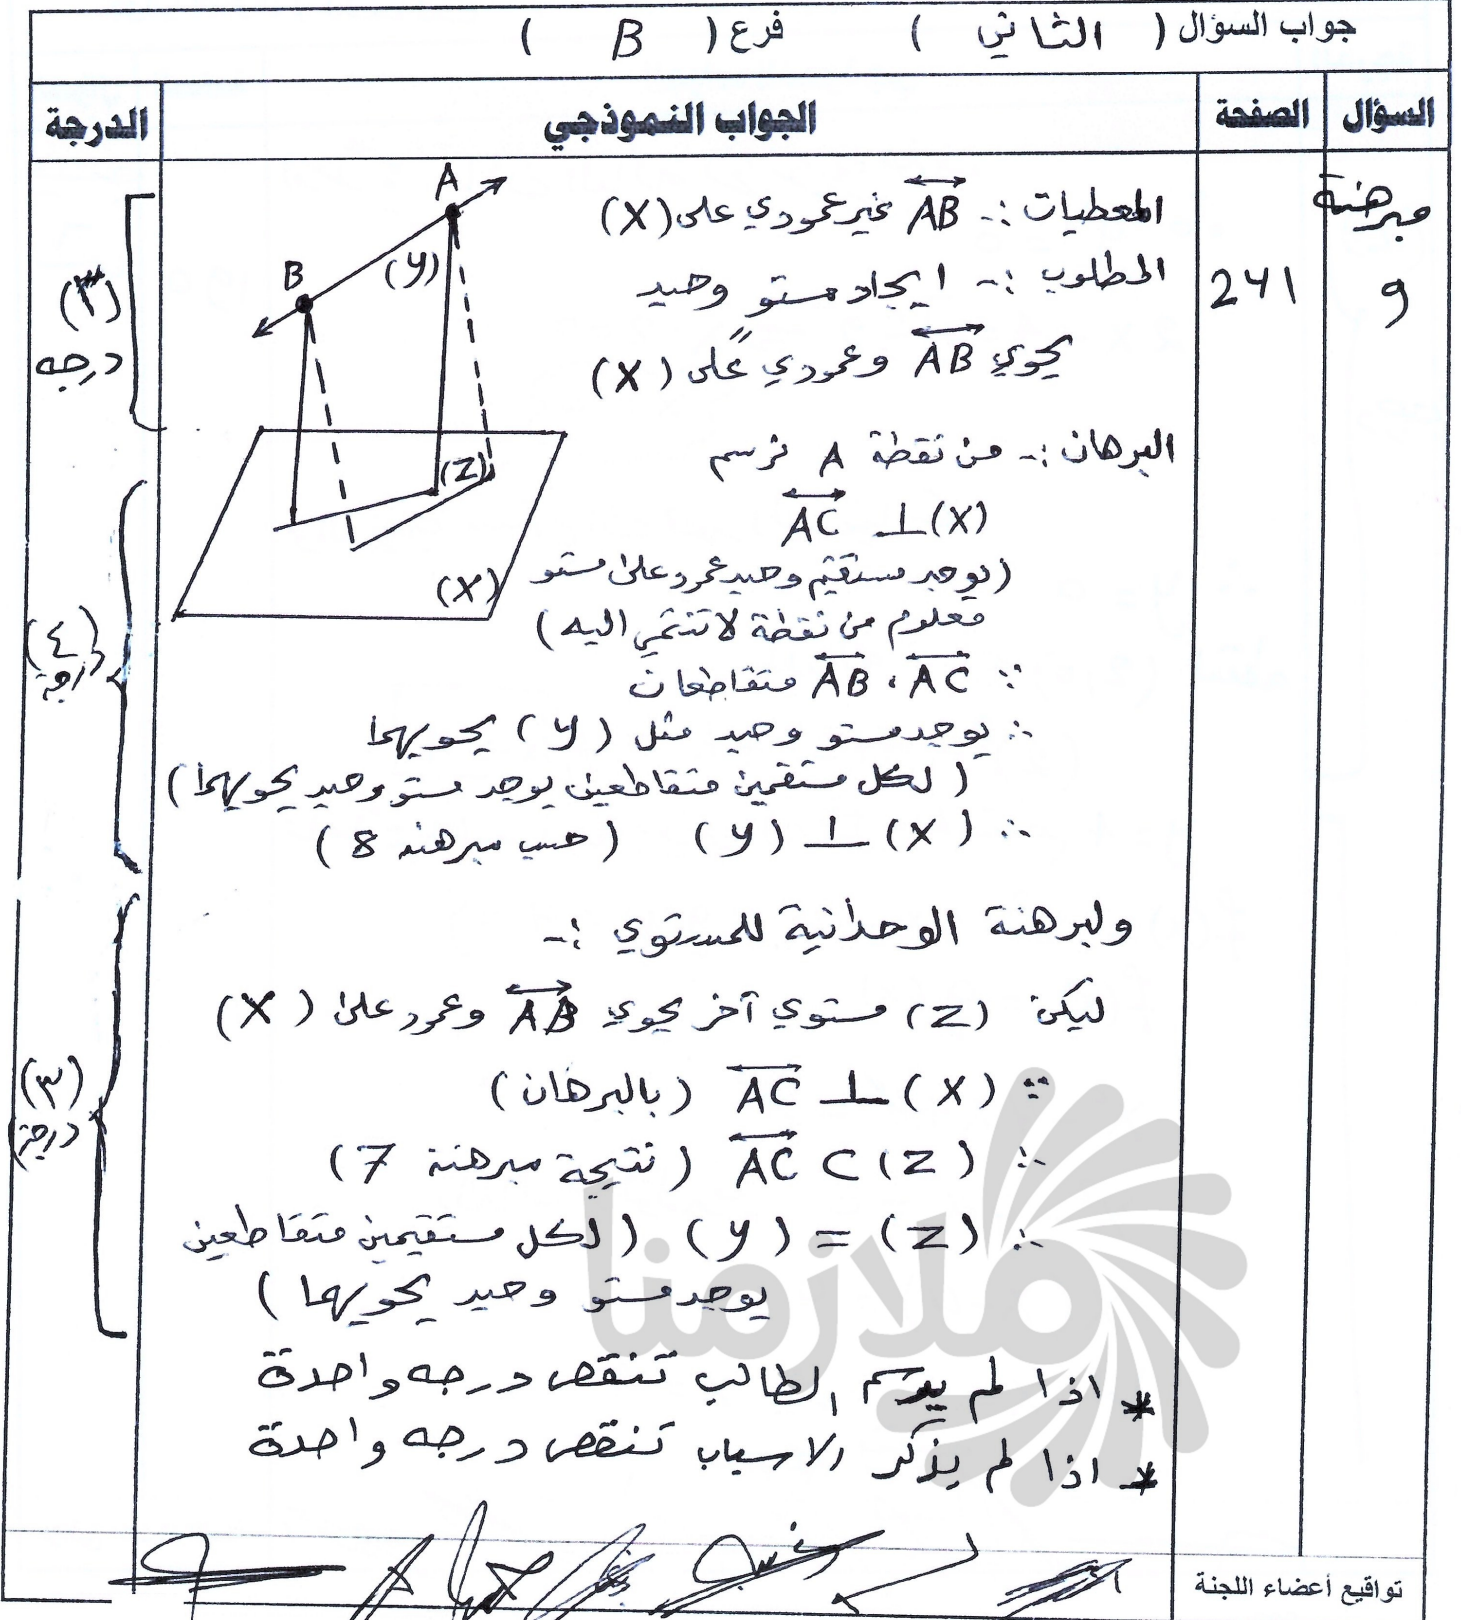 جواب السؤال ( الثاني ) فرع ( B )
السؤال الصفحة الجواب النموذجي الدرجة
مبرهنة
9
241
المعطيات :- AB غير عمودي على (X)
المطلوب :- ايجاد مستو وحيد
يحوي AB وعمودي على (X)
البرهان :- من نقطة A نرسم
AC ⊥ (X)
(يوجد مستقيم وحيد عمود على مستو
معلوم من نقطة لا تنتمي اليه)
∵ AB ، AC متقاطعان
∴ يوجد مستو وحيد مثل (y) يحويهما
(لكل مستقيمين متقاطعين يوجد مستو وحيد يحويهما)
∴ (y) ⊥ (X) (حسب مبرهنه 8)
ولبرهنة الوحدانية للمستوي :-
ليكن (Z) مستوي آخر يحوي AB وعمود على (X)
∵ AC ⊥ (X) (بالبرهان)
∴ AC ⊂ (Z) (نتيجة مبرهنة 7)
∴ (y) = (Z) (لكل مستقيمين متقاطعين
يوجد مستو وحيد يحويهما)
* اذا لم يرسم الطالب تنقص درجه واحدة
* اذا لم يذكر الاسباب تنقص درجه واحدة
A
B
(y)
(Z)
(X)
(٣)
درجه
(٤)
درجة
(٣)
درجة
ملازمنا
تواقيع أعضاء اللجنة